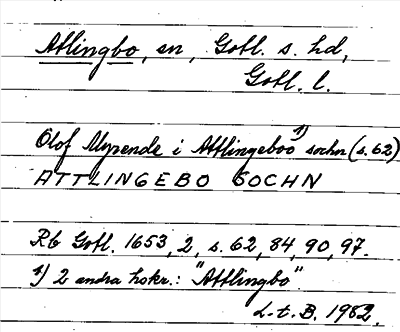 Atlingbo, sn, Gotl. s. hd,
Gotl. l.
Olof Myrende i Attlingeboo ¹⁾ sochn (s. 62)
ATTLINGEBO SOCHN
Rb Gotl. 1653, 2, s. 62, 84, 90, 97.
¹⁾ 2 andra hskr.: "Attlingbo".
L-t. B. 1952.